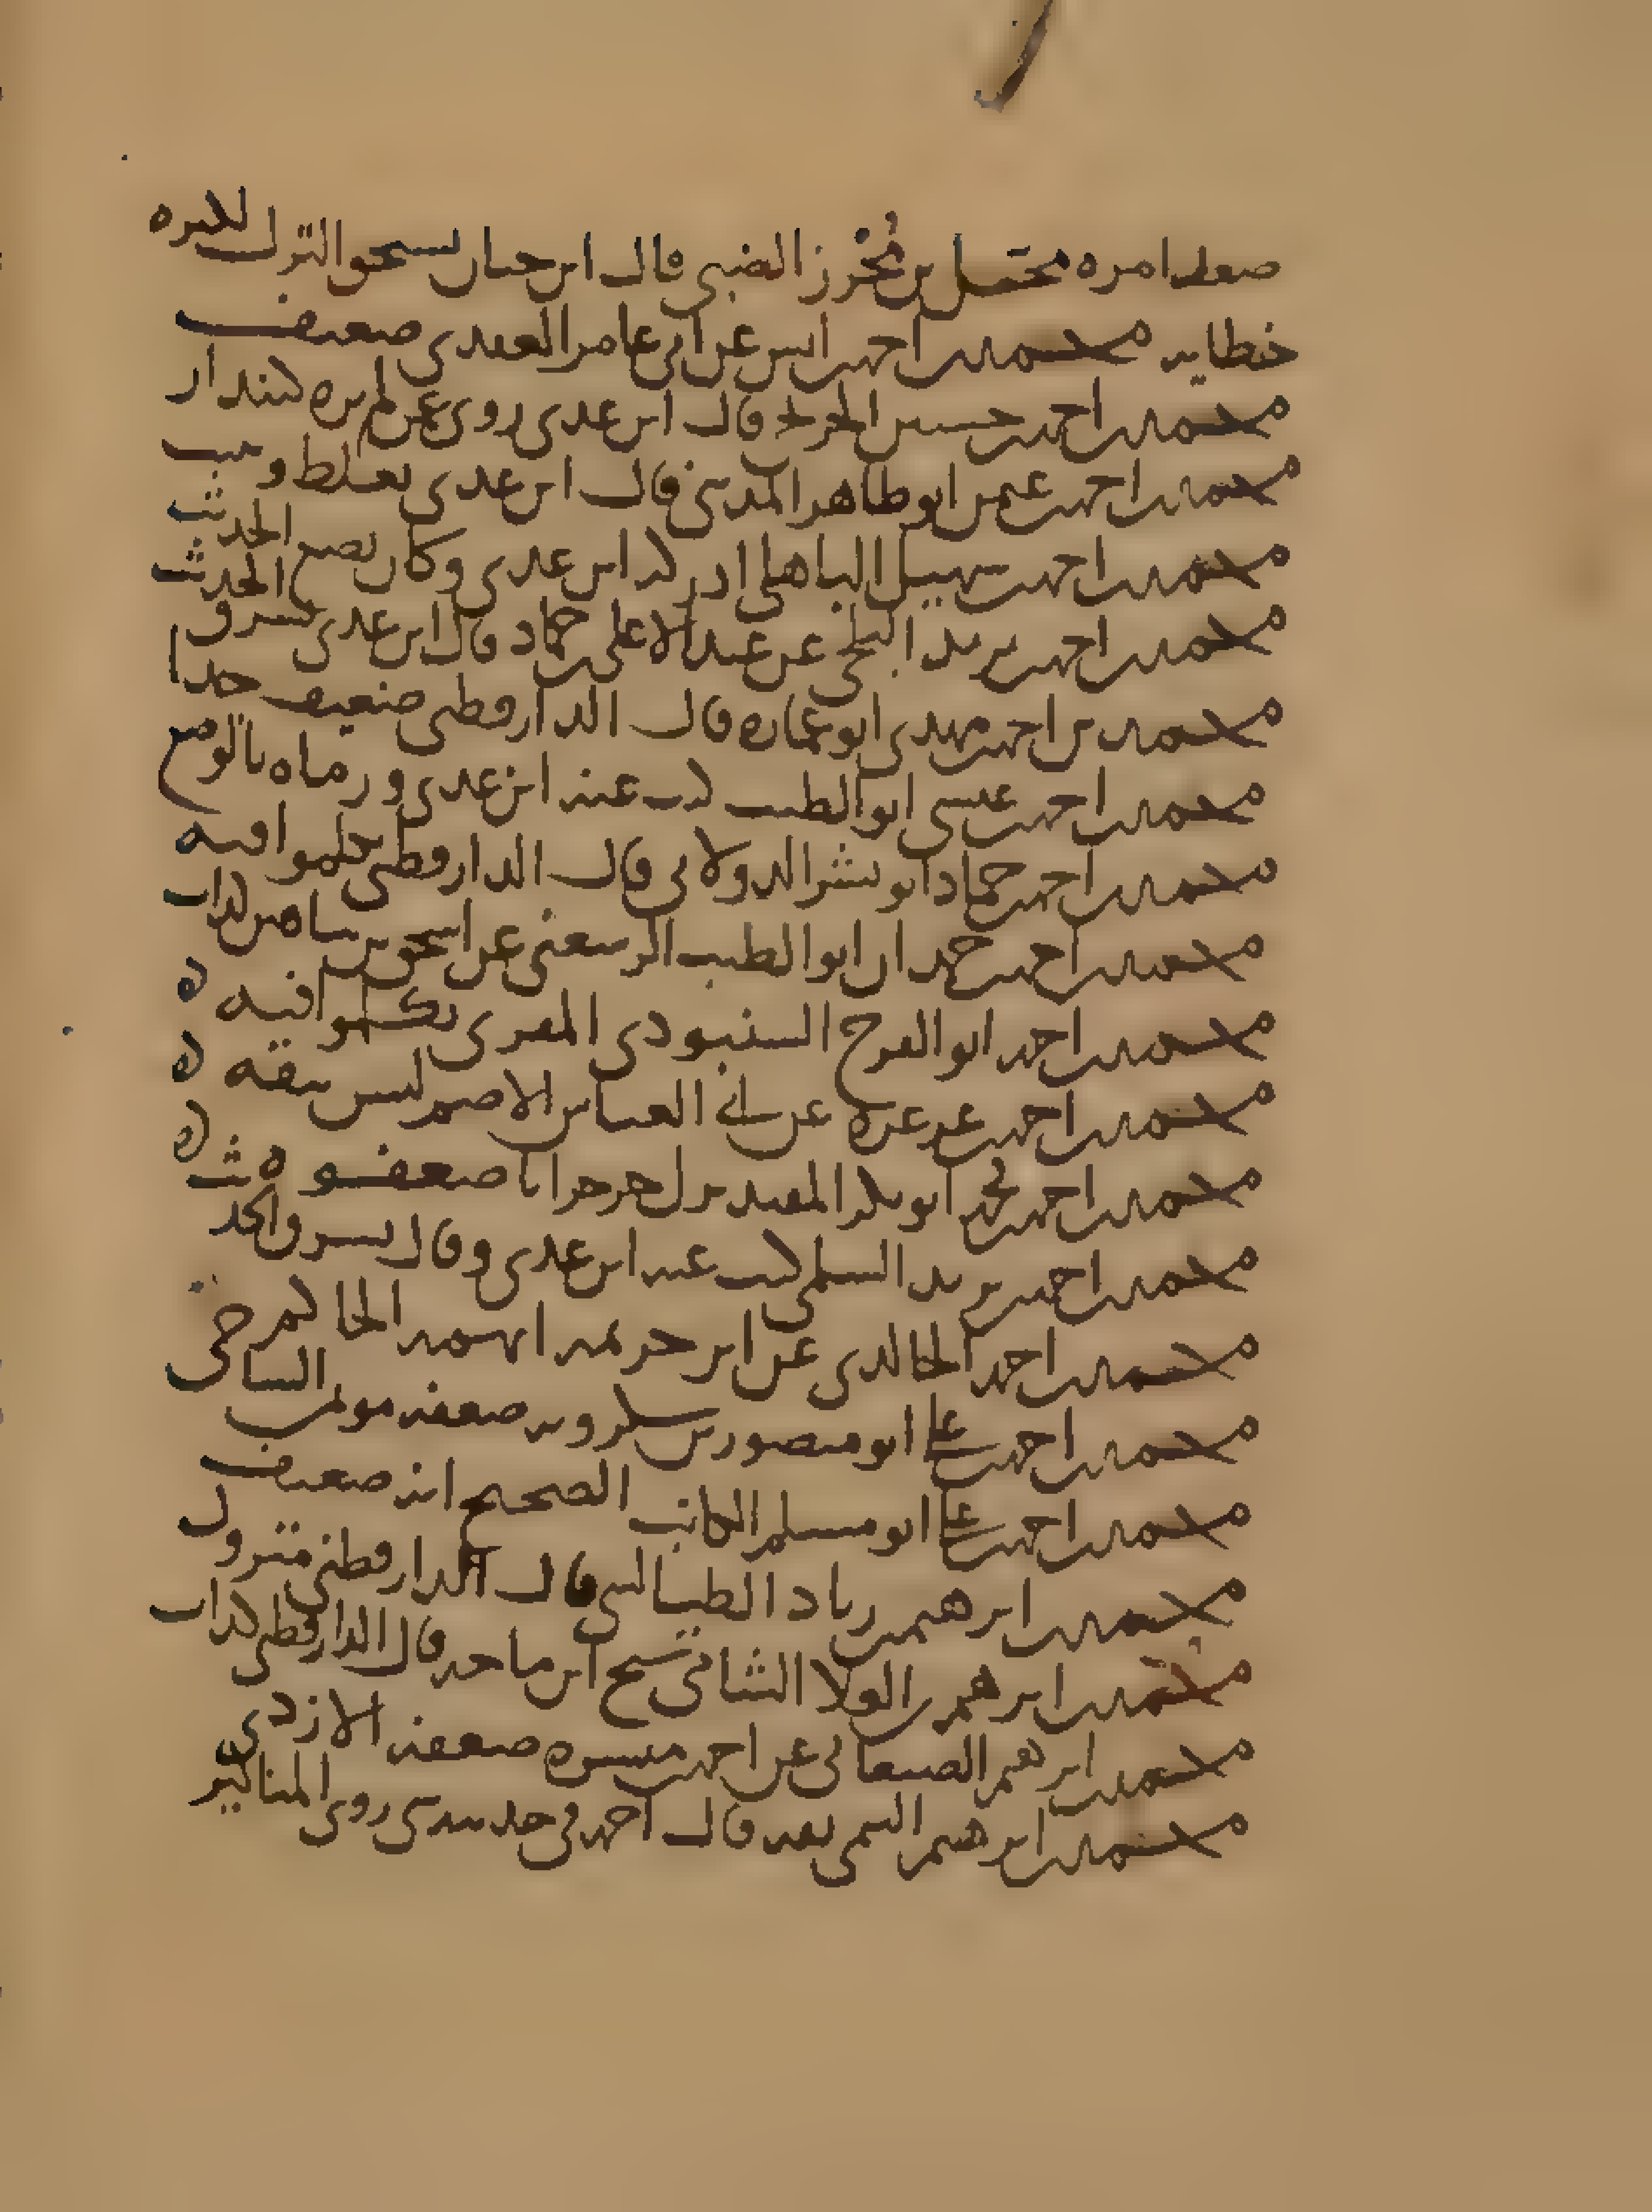 ضعف امره محتسل بن مُحرز الضبي قال ابن حبان يستحق الترك لكثره
خطايه محمد بن احمد بن انس عن ابي عامر العقدي ضعيف
محمد بن احمد بن حسين قال ابن عدي روى عمن لم يره كبندار
محمد بن احمد بن عمر ابو طاهر المديني قال ابن عدي يغلط ويثبت
محمد بن احمد بن سهيل الباهلي ادركه ابن عدي وكان يضع الحديث
محمد بن احمد بن يزيد البلخي عن عبد الاعلى بن حماد قال ابن عدي يسرق الحديث
محمد بن احمد بن مهدي ابو عماره قال الدارقطني ضعيف جدا
محمد بن احمد بن عيسى ابو الطيب كتب عنه ابن عدي ورماه بالوضع
محمد بن احمد بن حماد ابو بشر الدولابي قال الدارقطني تكلموا فيه
محمد بن احمد بن حمدان ابو الطيب الرسعني عن اسحق بن شاهين كذاب
محمد بن احمد ابو الفرج الشنبوذي المقري تكلموا فيه ه
محمد بن احمد بن عن ابي العباس الاصم ليس بثقه ه
محمد بن احمد بن محمد ابو بكر المفيد نزل جرجرايا ضعفوه ه
محمد بن احمد بن يزيد السلمي كتب عنه ابن عدي وقال يسرق الحديث
محمد بن احمد الخالدي عن ابن خزيمه اتهمه الحاكم
محمد بن احمد بن علي ابو منصور بن شكرويه ضعفه موتمن الساجي
محمد بن احمد بن علي ابو مسلم الكاتب الصحيح انه ضعيف
محمد بن ابرهيم بن زياد الطيالسي قال الدارقطني متروك
محمد بن ابرهيم بن العلا الشامي شيخ ابن ماجه قال الدارقطني كذاب
محمد بن ابرهيم الصنعاني عن احمد بن ميسره ضعفه الازدي
محمد بن ابرهيم التيمي ثقه قال احمد في حديثه شي روى المناكير